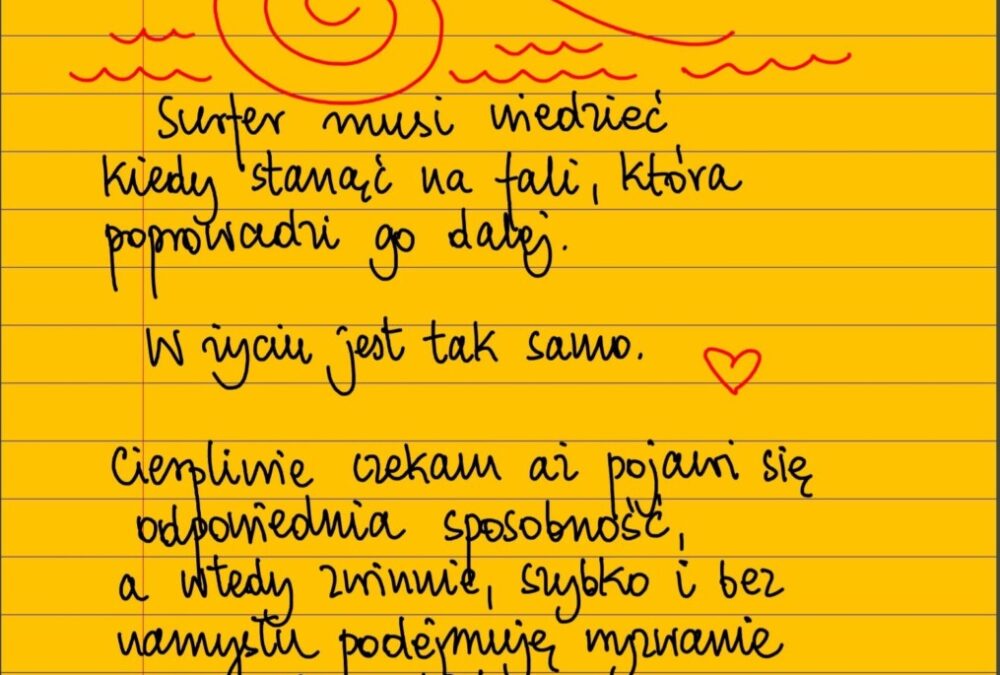 Surfer musi wiedzieć
kiedy stanąć na fali, która
poprowadzi go dalej.
W życiu jest tak samo.
Cierpliwie czekam aż pojawi się
odpowiednia sposobność,
a wtedy zwinnie, szybko i bez
namysłu podejmuję wyzwanie